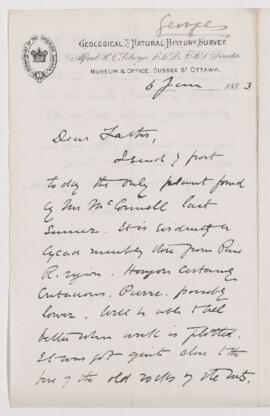 George
GEOLOGICAL & NATURAL HISTORY SURVEY.
Alfred R. C. Selwyn, L.L.D., F.R.S. Director.
MUSEUM & OFFICE, SUSSEX ST OTTAWA.
6 Jan 1883
Dear Father,
I send by post
today the only plant found
by Mr McConnell last
Summer. It is evidently a
Cycad resembling those from Pine
R. region. Horizon certainly
Cretaceous. Pierre possibly
lower. Will be able to tell
better when work is plotted.
It was got quite close to the
base of the old rocks of the Mts.